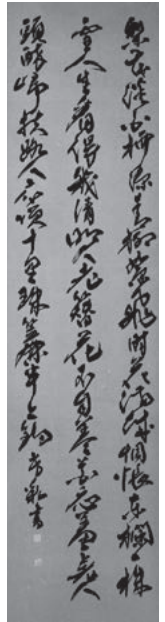 梨花淡白柳深青柳絮飛時花滿城惆悵東欄一株
雪人生看得幾清明人老簪花不自羞花應羞上老人
頭醉歸扶路人應笑十里珠簾半上鉤 書